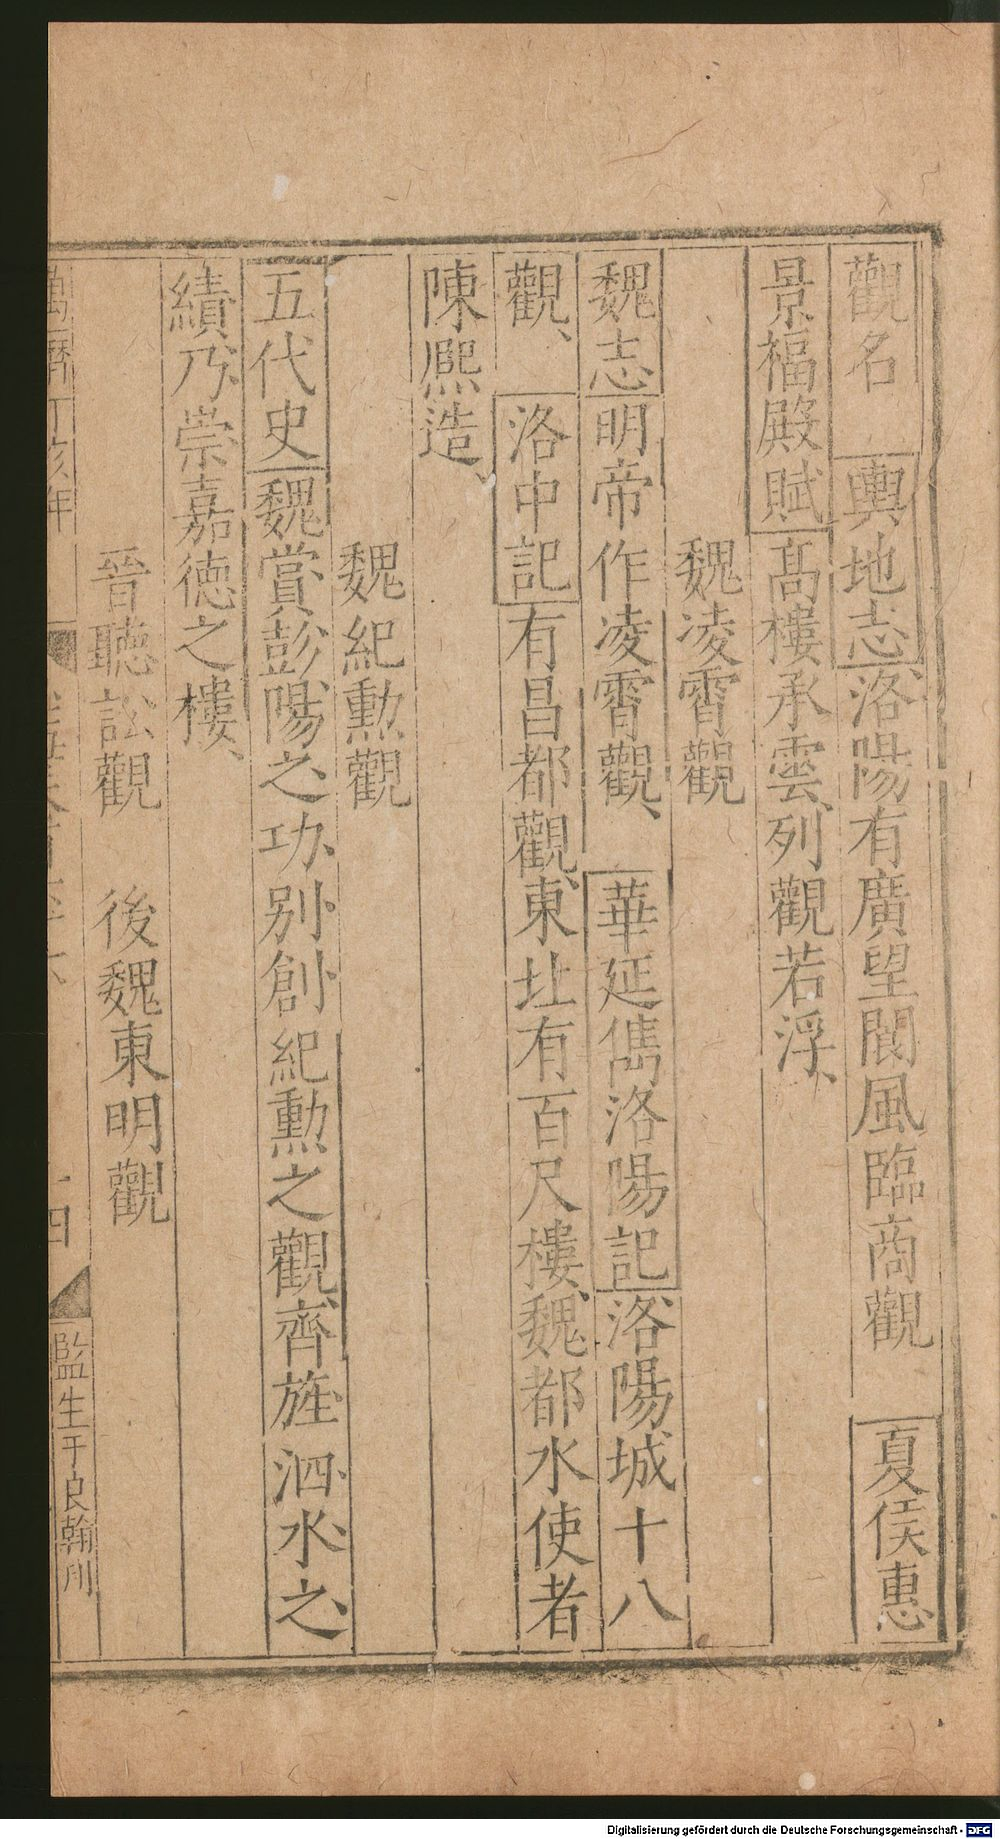 觀名　輿地志洛陽有廣望閬風臨商觀　夏侯惠
景福殿賦髙樓承雲列觀若浮、
魏凌霄觀
魏志明帝作凌霄觀、華延儁洛陽記洛陽城十八
觀、洛中記有昌都觀、東北有百尺樓、魏都水使者
陳熙造、
魏紀勲觀
五代史魏賞彭陽之功、别創紀勲之觀、齊旌泗水之
績乃崇嘉德之樓、
晉聽訟觀　後魏東明觀
萬曆丁亥年
十四
監生于良翰刋
Digitalisierung gefördert durch die Deutsche Forschungsgemeinschaft - DFG